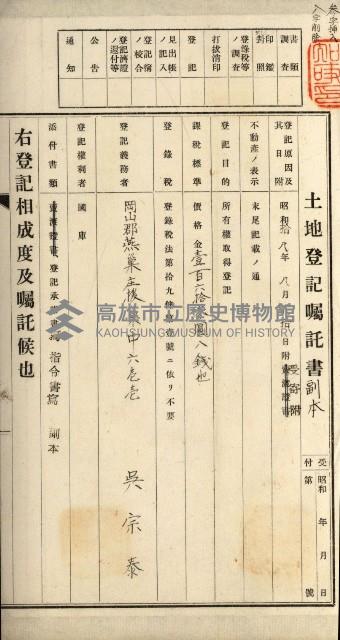 土地登記囑託書 副本
受付 昭和 年 月 日 第 號
登記原因及其日附 昭和拾八年八月 日附 受寄附
不動產ノ表示 末尾記載ノ通
登記目的 所有權取得登記
課稅標準 價格金壹百六拾 圓八錢也
登錄稅 登錄稅法第拾九條 壹號ニ依リ不要
登記義務者 岡山郡燕巢庄 中六壱壱
吳宗泰
登記權利者 國庫
添付書類 登記承 書 指令書寫 副本
右登記相成度及囑託候也
書類調査
印鑑對照
登錄稅等ノ調査
打拔濟印
登記
見出帳ノ記入
登記簿ノ校合
登記濟證ノ還付等
公告
通知
高雄市立歷史博物館
KAOHSIUNG MUSEUM OF HISTORY